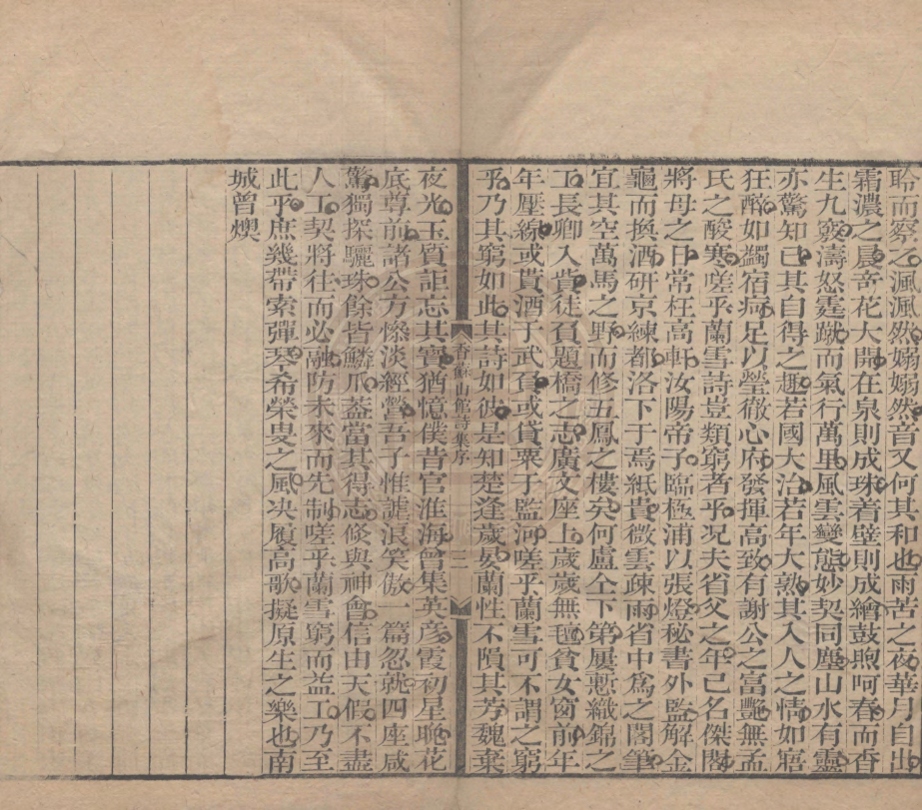 聆而察之渢渢然嫋嫋然音又何其和也雨苦之夜華月自出
霜濃之晨奇花大開在泉則成珠着壁則成繪鼓煦呵春而香
生九竅濤怒霆蹴而氣行萬里風雲變態妙契同塵山水有靈
亦驚知己其自得之趣若國大治若年大熟其入人之情如寤
狂醉如蠲宿痾足以瑩徹心府發揮高致有謝公之富艷無孟
氏之酸寒嗟乎蘭雪詩豈類窮者乎況夫省父之年已名傑閣
將母之日常枉高軒汝陽帝子臨極浦以張燈秘書外監解金
龜而換酒研京練都洛下于焉紙貴微雲疎雨省中爲之閣筆
宜其空萬馬之野而修五鳳之樓矣何盧仝下第屢慙織錦之
工長卿入貲徒負題橋之志廣文座上歲歲無氊貧女窗前年
年壓線或貰酒于武負或貸粟于監河嗟乎蘭雪可不謂之窮
乎乃其窮如此其詩如彼是知楚逢歲晏蘭性不隕其芳魏棄
香蘇山館詩集序
二
夜光玉質詎忘其寶猶憶僕昔官淮海曾集英彥霞初星晚花
底尊前諸公方慘淡經營吾子惟謔浪笑傲一篇忽就四座咸
驚獨探驪珠餘皆鱗爪蓋當其得志倏與神會信由天假不盡
人工契將往而必融防未來而先制嗟乎蘭雪窮而益工乃至
此乎庶幾帶索彈琴希榮叟之風决履高歌擬原生之樂也南
城曾燠